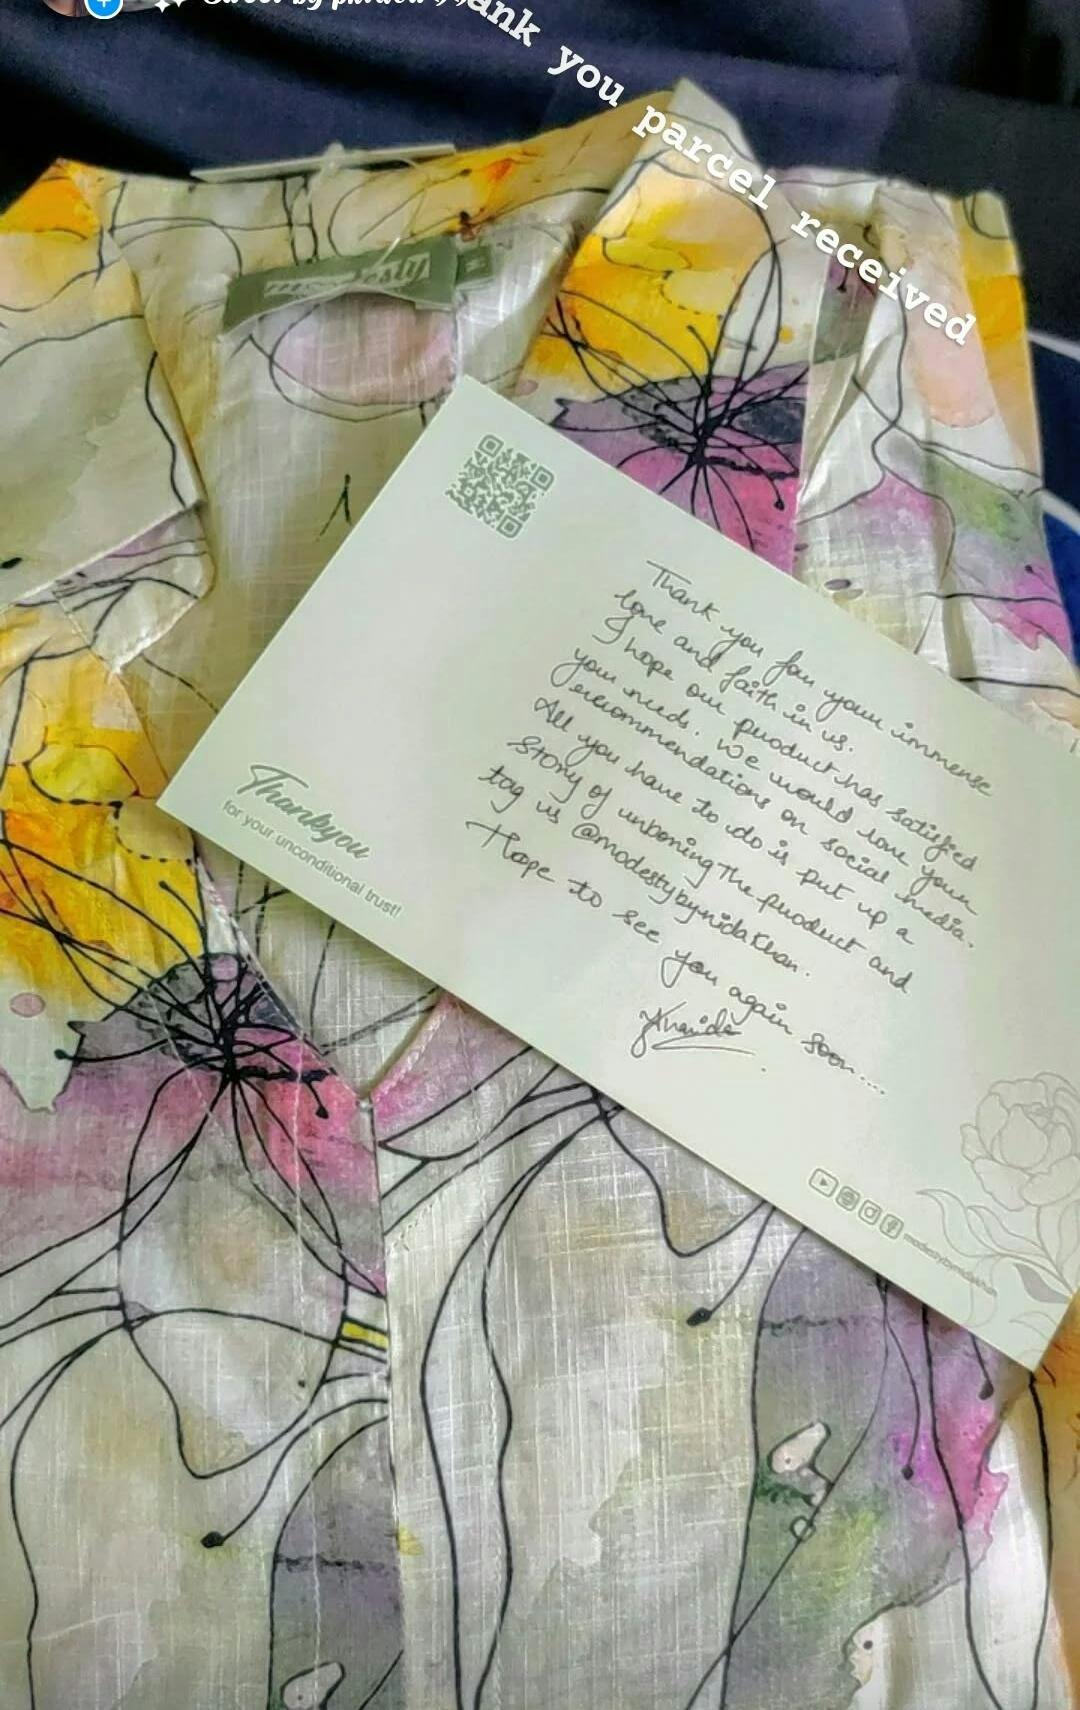 ank you parcel received
modesty
M
Thank you for your immense
love and faith in us.
I hope our product has satisfied
your needs. We would love your
recommendations on social media.
All you have to do is put up a
story of unboxing the product and
tag us @modestybynidakhan.
Hope to see
you again soon....
Thankyou
for your unconditional trust!
modestybynidakhan